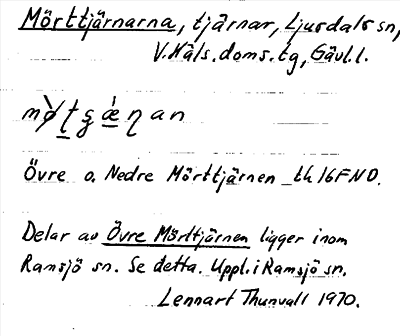 Mörttjärnarna, tjärnar, Ljusdals sn,
V. Häls. doms. tg, Gävl. l.
Övre o. Nedre Mörttjärnen th 16FND.
Delar av Övre Mörttjärnen ligger inom
Ramsjö sn. Se detta. Uppl. i Ramsjö sn.
Lennart Thunvall 1970.